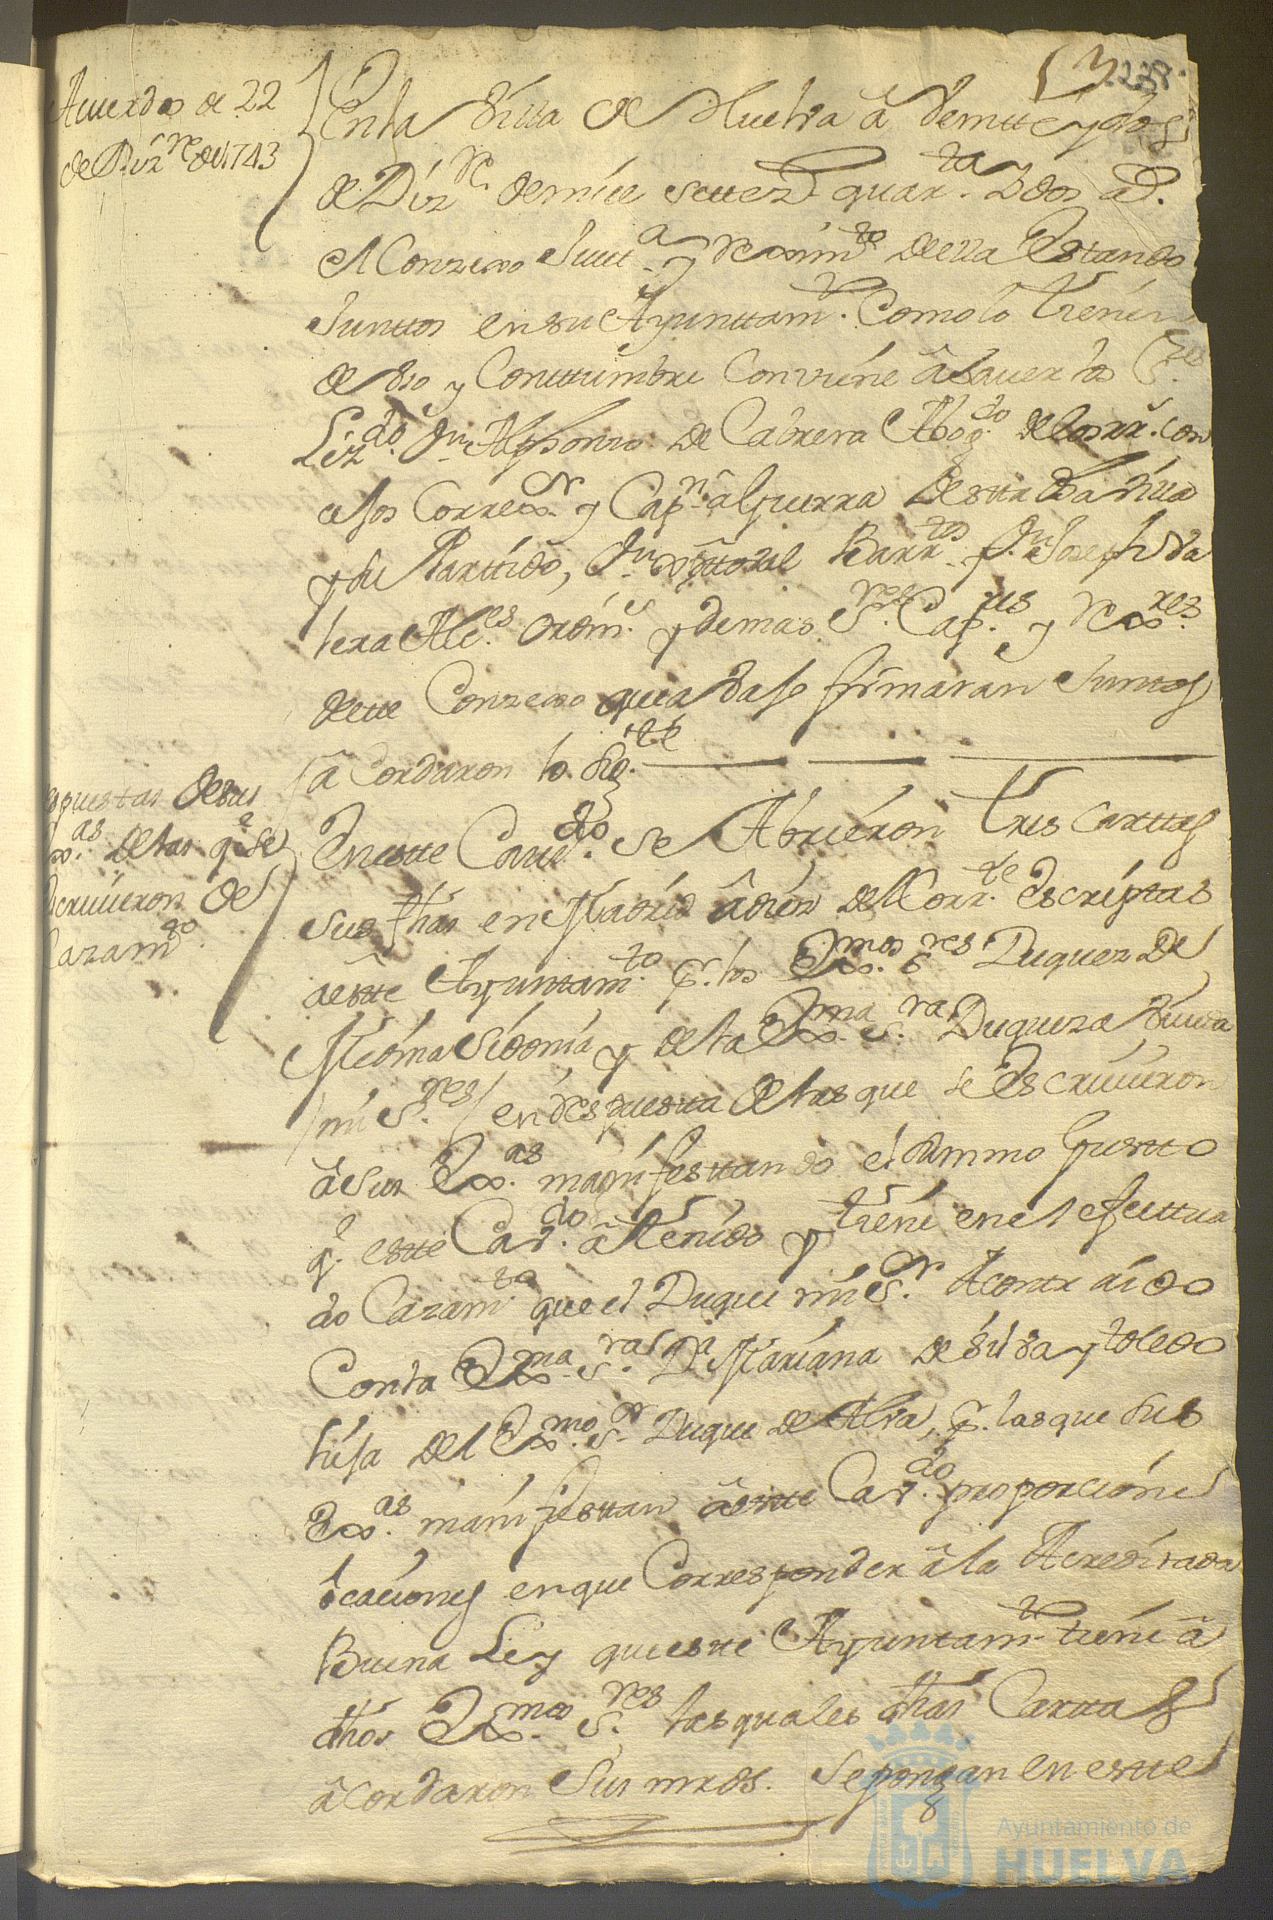 Acuerdos de 22
de Diz.re de 1743
238.
En la Villa de Huelva â veintte y dos
de Diz.re de mil settez.s quar.ta y dos a.s
el Conzexo Justt.a y Reximi.to de ella estando
Juntos en su Ayunttam.to Como lo tienen
de Uso y Costtumbre Conviene âsaver los S.res
Liz.do D.n Alphonso de Cabrera Abog.do de los RR. con
esos Correx.r y Cap.n â Guerra de estta dha Villa
y su Parttido, D.n Xpttoval Barr.tos D.n Joseph Va
lera Alc.es ordin.s y demas S.res Cap.res y Rex.res
deste Conzexo que avajo firmaran Juntos
âCordaron lo Sig.te
Respuestas de sus
Ex.as de las q.e se
escrivieron de
Cazam.to
En estte Cavi.do se Abrieron tres carttas
sus fhas en Madrid â diez del Corr.te escriptas
a estte Ayuntam.to p.r los Ex.mos S.res Duques de
Medina Sidonia, y de la Ex.ma S.ra Duqueza Viuda
/mis S.res/ en respuesta de las que se escrivieron
â Sus Ex.as manifesttando el summo Gustto
q.e estte Cav.do â tenido y tiene en el efecttua
do Cazam.to que el Duque mi S.r A contraido
Con la Ex.ma S.ra D.a Mariana de Silva y toledo
hija del Ex.mo S.r Duque de Alva, p.r las que sus
Ex.as manifiesttan â estte Cav.do proporcione
ocaciones en que Corresponder â la Acreditada
Buena Ley que estte Ayuntam.to tiene â
dhos Ex.mos S.res las quales dhas Carttas
âCordaron Sus mrds. Se pongan en estte
Ayuntamiento de
HUELVA